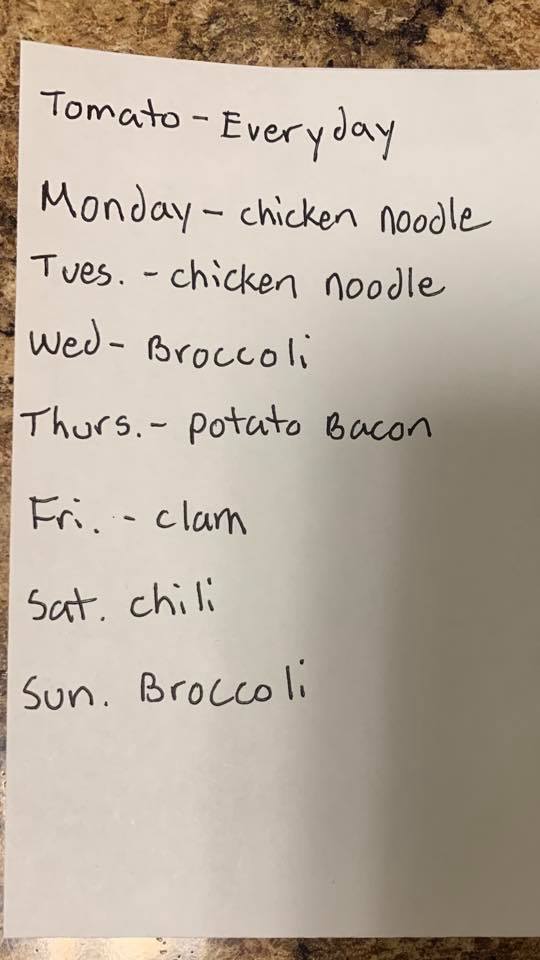 Tomato - Everyday
Monday - chicken noodle
Tues. - chicken noodle
Wed - Broccoli
Thurs. - potato Bacon
Fri. - clam
Sat. chili
Sun. Broccoli